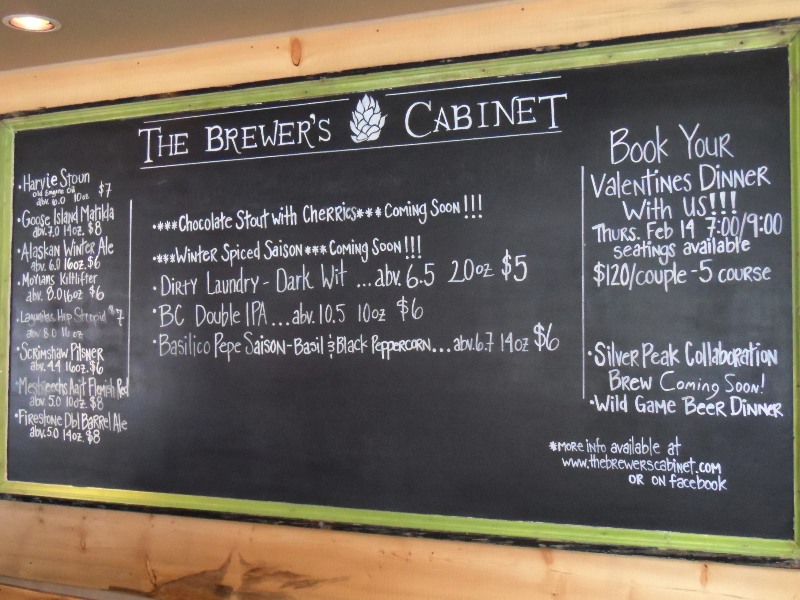 THE BREWER'S CABINET
•Harvie Stoun $7
Old Engine Oil
abv. 6.0 10oz
•Goose Island Matilda
abv. 7.0 14oz. $8
•Alaskan Winter Ale
abv. 6.0 16oz. $6
•Moylans Kiltlifter
abv. 8.0 16oz $6
•Lagunitas Hop Stoopid $7
abv 8.0 16 oz
•Scrimshaw Pilsner
abv. 4.4 16oz. $6
Flemish Red
abv. 5.0 10oz. $8
•Firestone Dbl Barrel Ale
abv. 5.0 14oz. $8
•***Chocolate Stout with Cherries*** Coming Soon!!!
•***Winter Spiced Saison*** Coming Soon!!!
•Dirty Laundry - Dark Wit ...abv. 6.5 20oz $5
•BC Double IPA...abv. 10.5 10oz $6
•Basilico Pepe Saison-Basil & Black Peppercorn...abv. 6.7 14oz $6
Book Your
Valentines Dinner
With Us!!!
Thurs. Feb 14 7:00/9:00
seatings available
$120/couple - 5 course
•Silver Peak Collaboration
Brew Coming Soon!
•Wild Game Beer Dinner
*more info available at
www.thebrewerscabinet.com
or on facebook